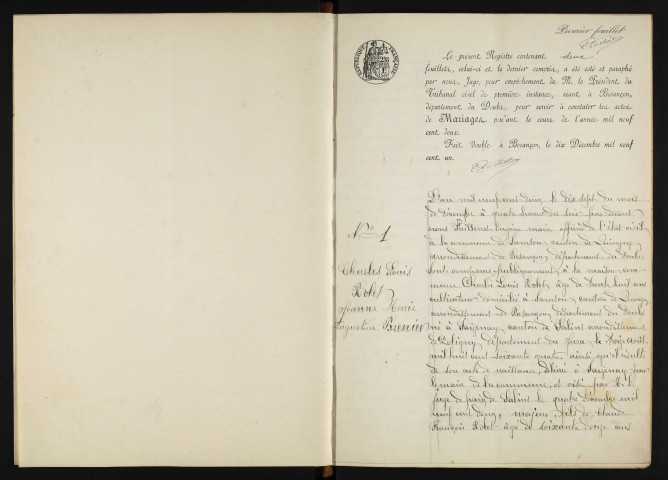 Premier feuillet
RÉPUBLIQUE FRANÇAISE
Le présent Registre contenant deux
feuillets, celui-ci et le dernier compris, a été coté et paraphé
par nous, Juge, pour empêchement de M. le Président du
Tribunal civil de première instance, séant à Besançon,
département du Doubs, pour servir à constater les actes
de Mariages pendant le cours de l'année mil neuf
cent deux.
Fait double à Besançon, le dix Décembre mil neuf
cent un.
No 1
Charles Louis
Robet
Jeanne Marie
Augustine Brenier
L'an mil neuf cent deux, le dix sept du mois
de décembre à quatre heures du soir par devant
nous maire officier de l'état civil
de la commune de Samson canton de Quingey
arrondissement de Besançon, département du Doubs
sont comparus publiquement à la maison com-
mune Charles Louis Robet, âgé de trente huit ans
cultivateur domicilié à Samson canton de Quingey
arrondissement de Besançon, département du Doubs
né à Saizenay canton de Salins arrondissement
de Poligny département du Jura, le treize août
mil huit cent soixante quatre, ainsi qu'il résulte
de son acte de naissance, délivré à Saizenay par
le maire de la commune, et visé par M. le
juge de paix de Salins le quatre décembre mil
neuf cent deux, majeur, fils de Claude
François Robet âgé de soixante douze ans